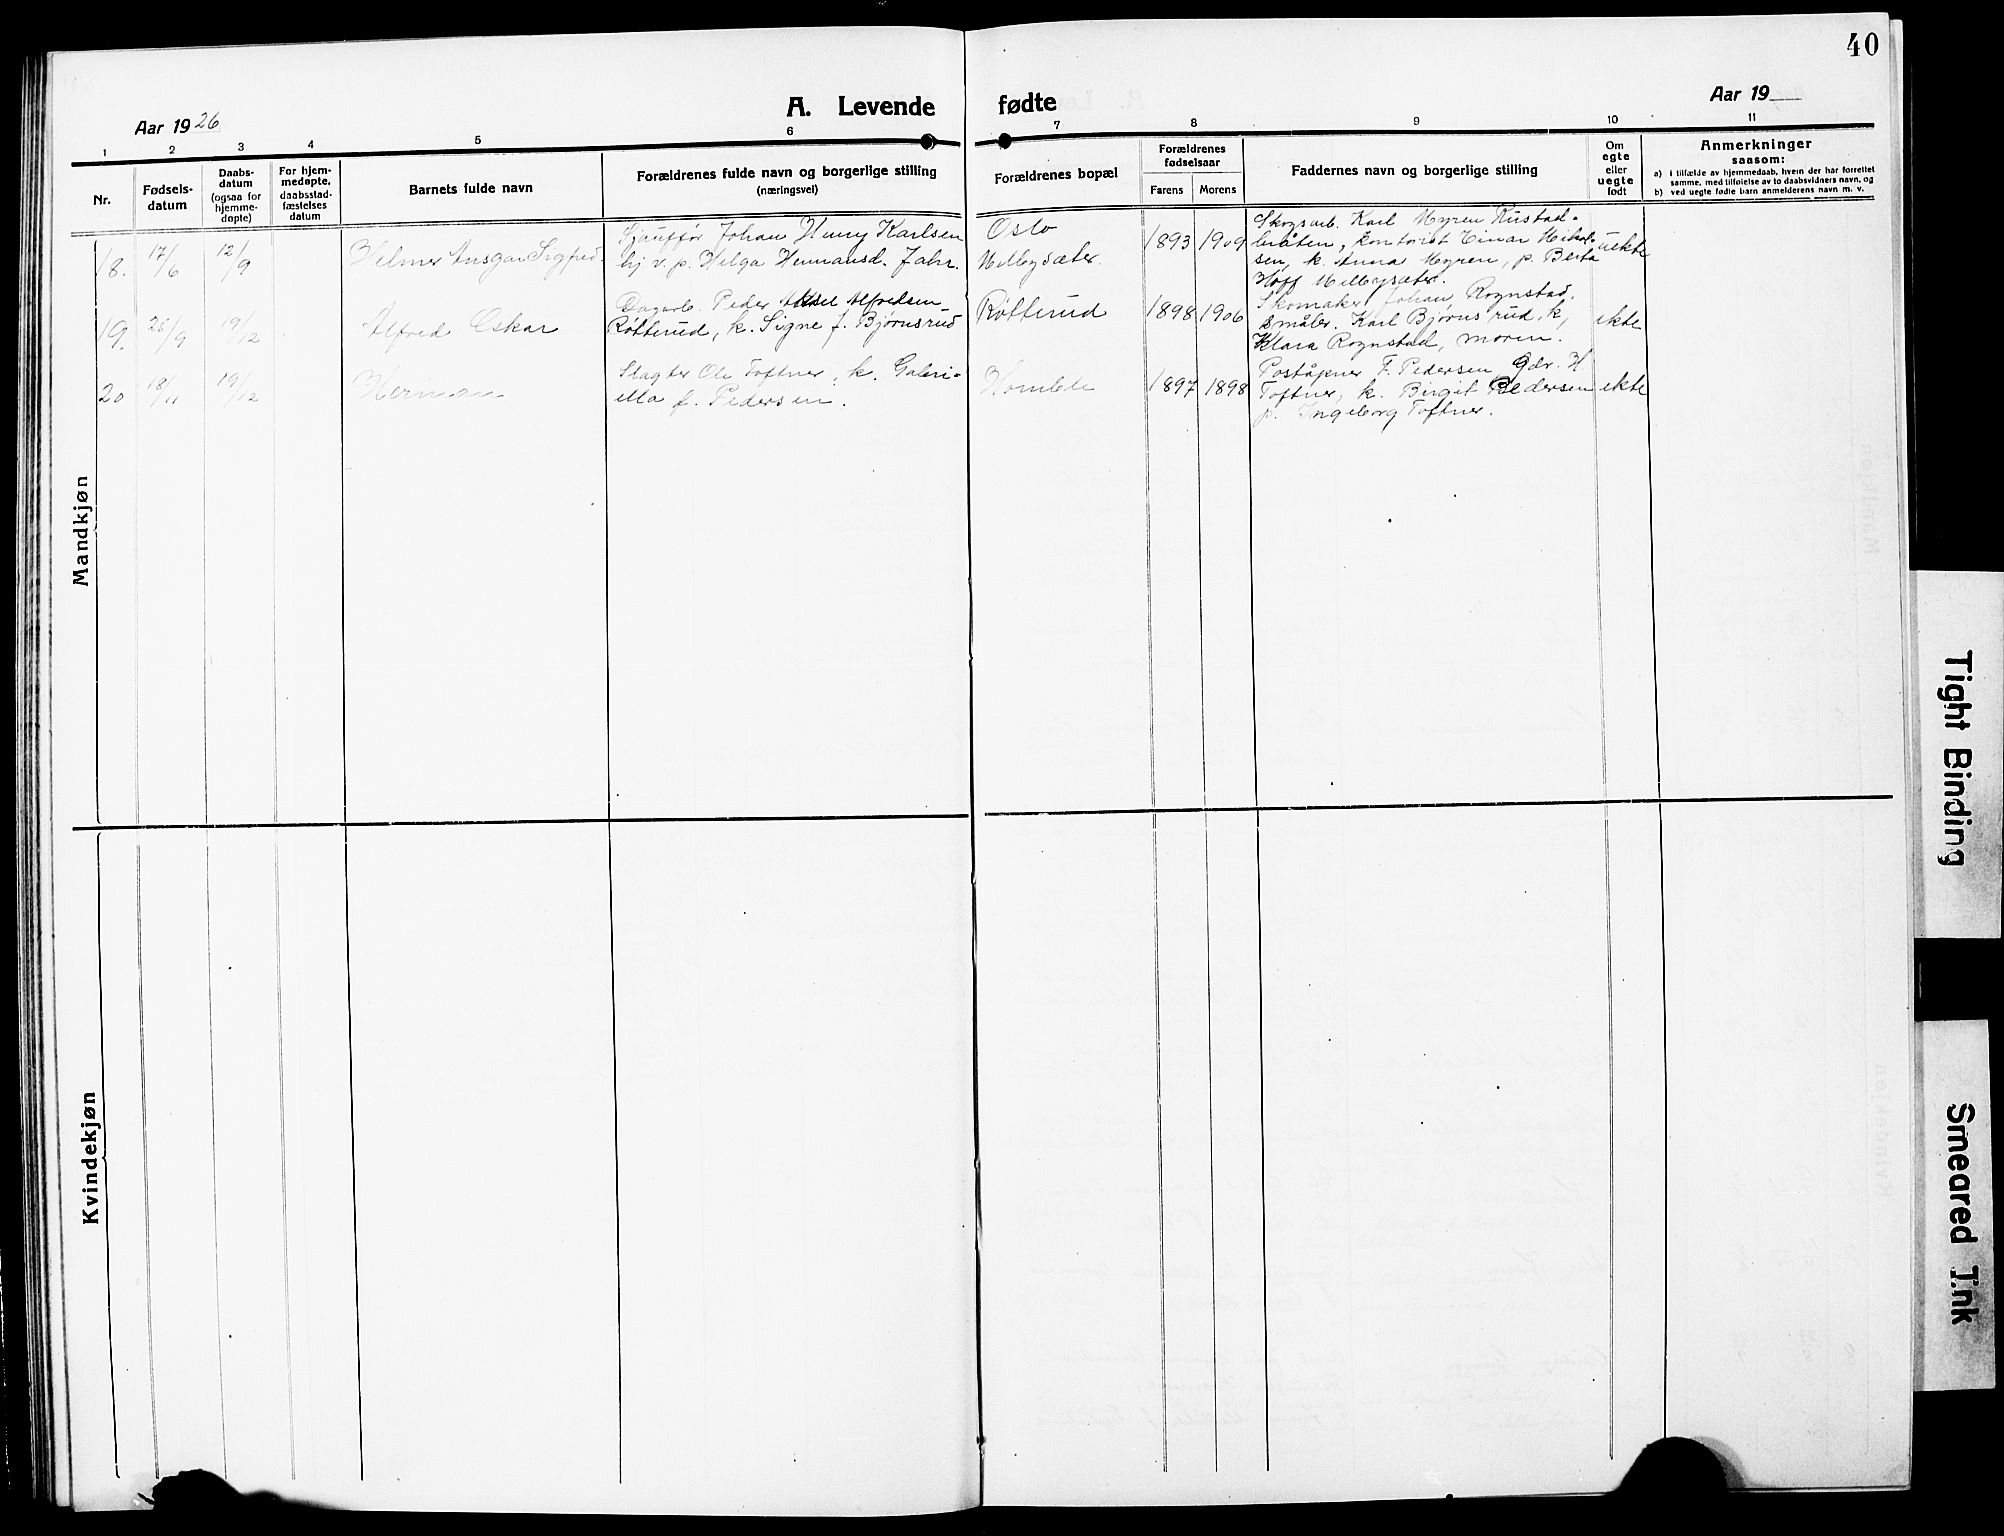 40
A. Levende fødte
Aar 1926
Aar 19
1 2 3 4 5 6 7 8 9 10 11
Nr.
Fødsels-
datum
Daabs-
datum
(ogsaa for
hjemme-
døpte)
For hjem-
medøpte,
daabsstad-
fæstelses
datum
Barnets fulde navn
Forældrenes fulde navn og borgerlige stilling
(næringsvei)
Forældrenes bopæl
Forældrenes
fødselsaar
Farens Morens
Faddernes navn og borgerlige stilling
Om
egte
eller
uegte
født
Anmerkninger
saasom:
a) i tilfælde av hjemmedaab, hvem der har forrettet
samme, med tilføielse av to daabsvidners navn, og
b) ved uegte fødte barn anmelderens navn m. v.
Mandkjøn
18. 17/6 12/9 Helmer Ansgar Sigfred.
Sjauffør Johan Henry Karlsen
hj v. p. Helga Hermansd. Jahr.
Oslo
Melbysæter.
1893 1909
Skogsarb. Karl Myren Rustad-
bråten, kontorist Einar Mikal-
sen, k. Anna Myren, p. Berta
Hoff Melbysæter.
uekte
19. 25/9 19/12 Alfred Oskar
Dagarb. Peder Aksel Alfredsen
Røtterud, k. Signe f. Bjørnsrud
Røtterud
1898 1906
Skomaker Johan Rognstad,
småbr. Karl Bjørnsrud, k,
Klara Rognstad, moren.
ekte
20 18/11 19/12 Herman
Slagter Ole Toftner, k. Galeri-
ella f. Pedersen.
Homble
1897 1898
Poståpner F. Pedersen gdr. H.
Toftner, k. Birgit Pedersen
p. Ingeborg Toftner.
ekte
Kvindekjøn
Tight Binding
Smeared Ink